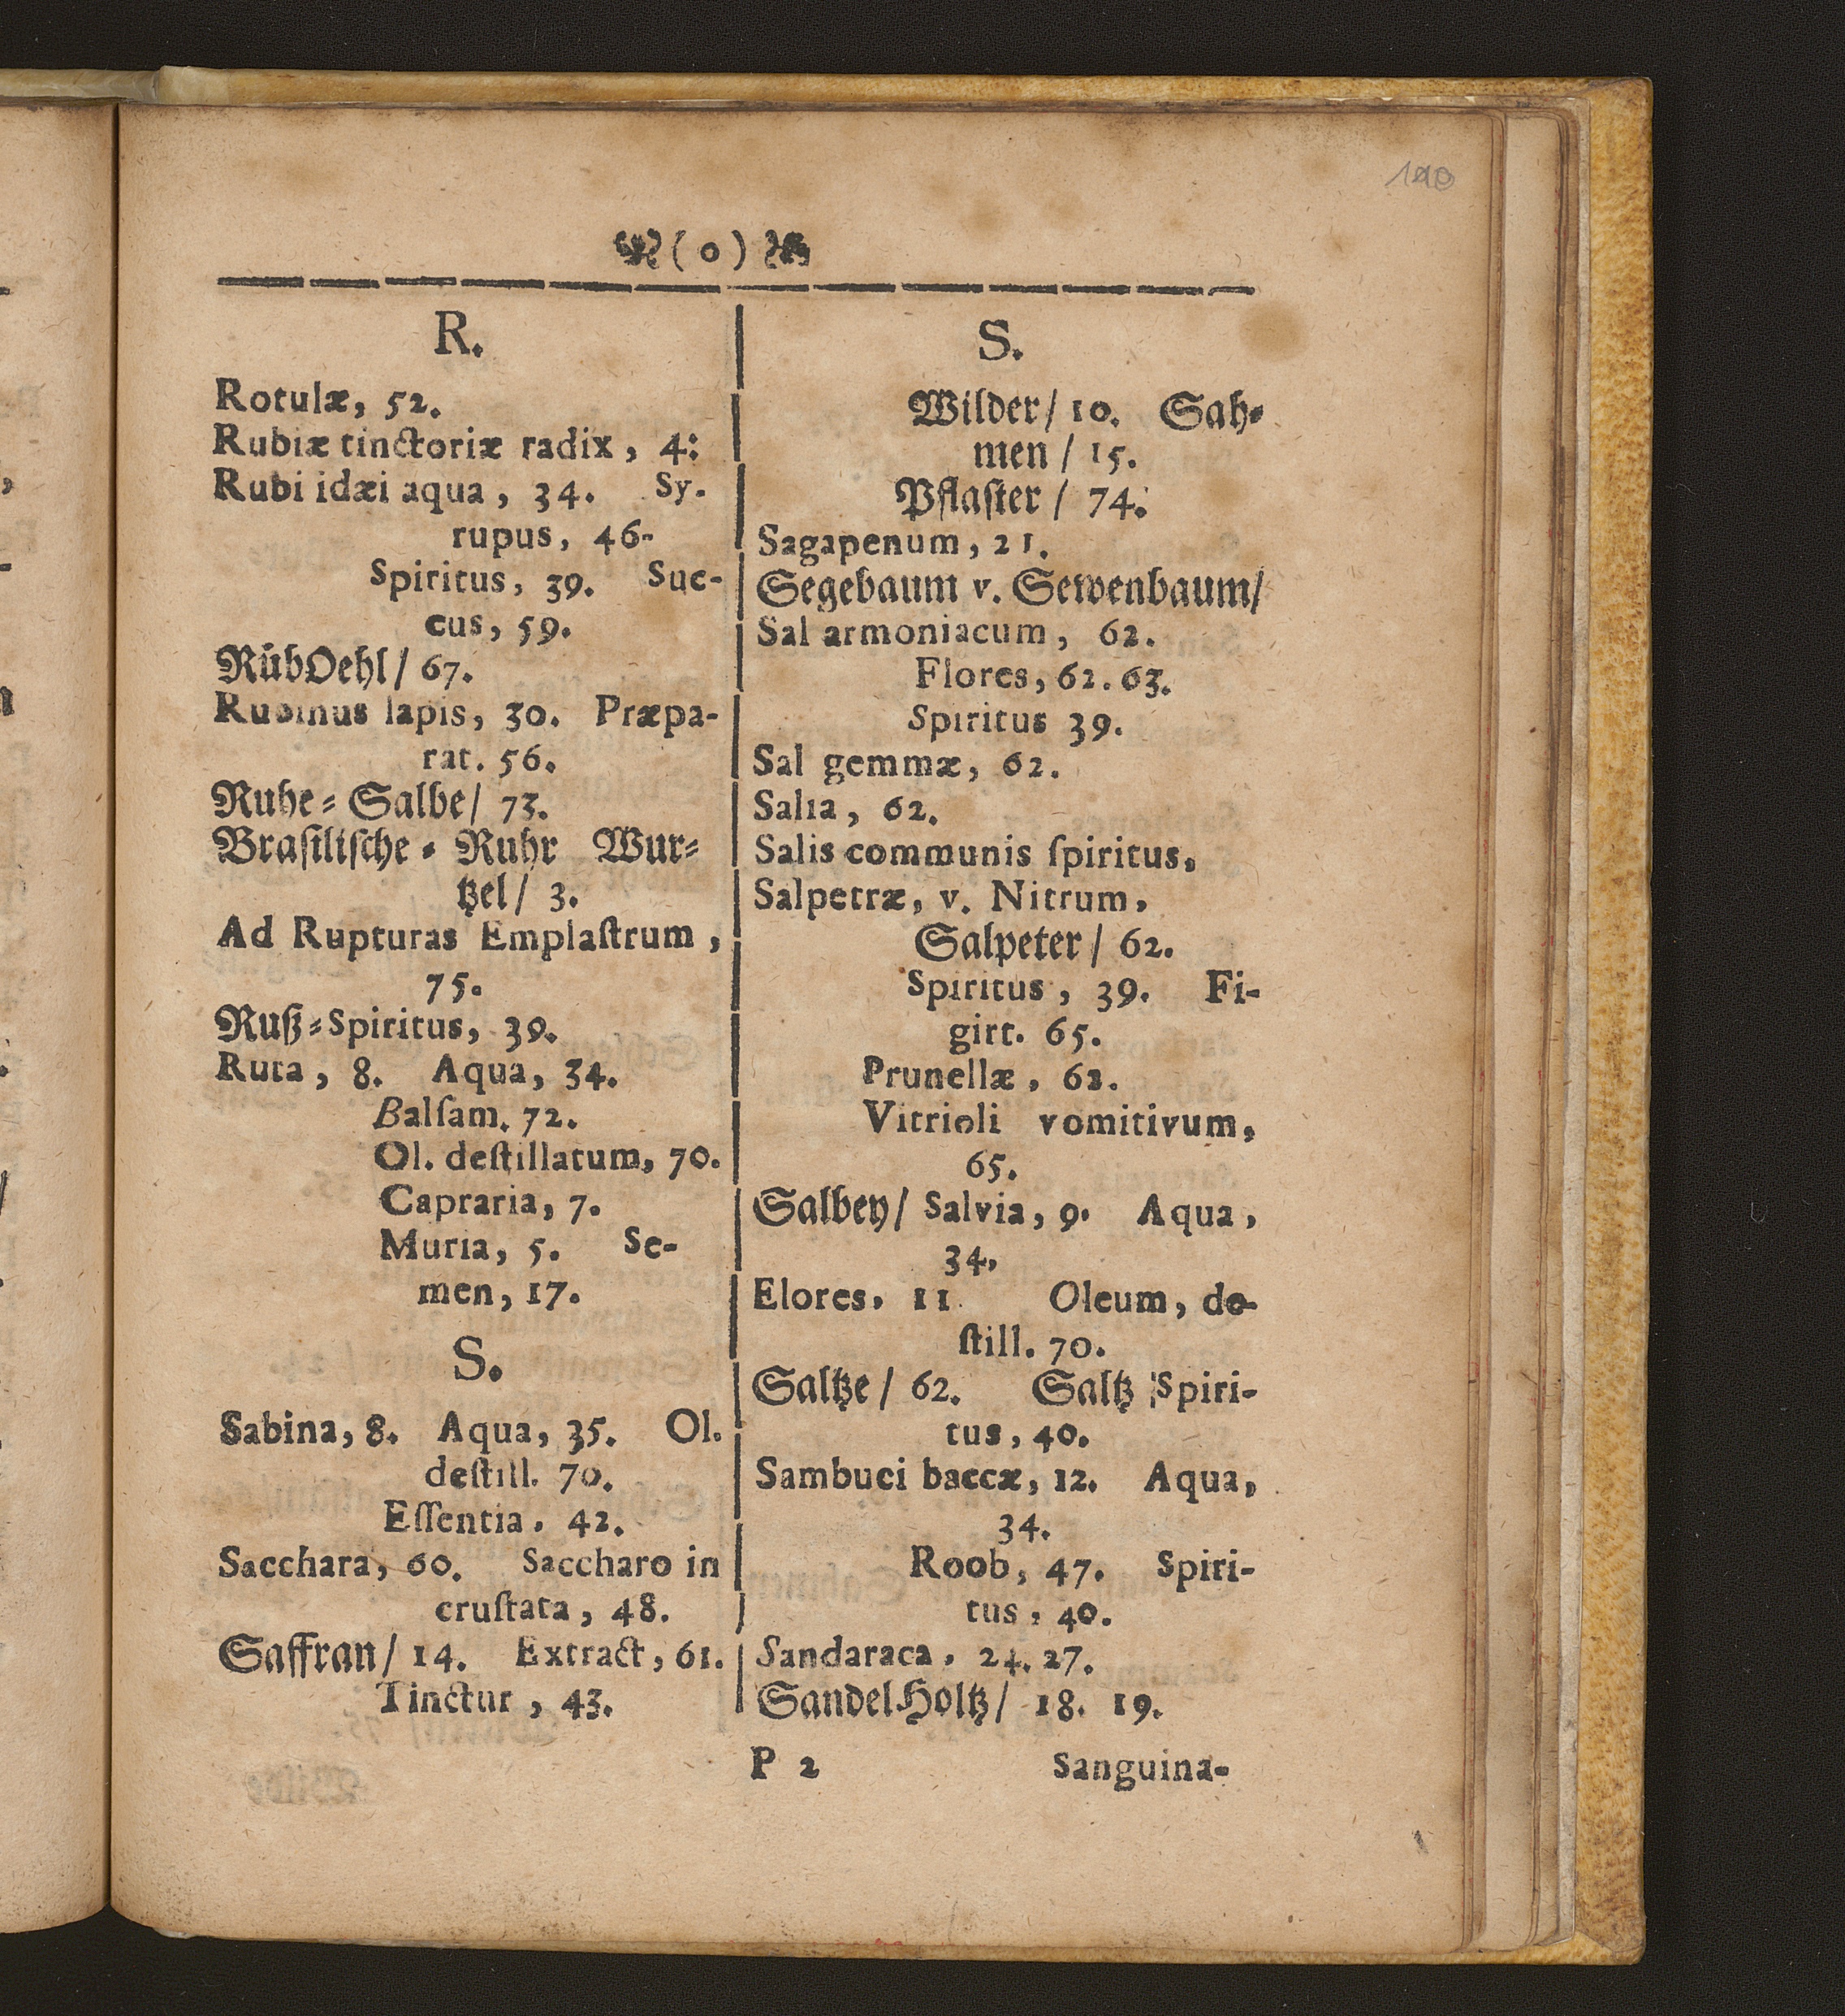 ( o )
R.
Rotulæ, 52.
Rubiæ tinctoriæ radix, 4:
Rubi idæi aqua, 34. Sy-
rupus, 46-
Spiritus, 39. Suc-
cus, 59.
RübOehl/ 67.
Rubinus lapis, 30. Præpa-
rat. 56.
Ruhe-Salbe/ 73.
Braſiliſche-Ruhr Wur-
tzel/ 3.
Ad Rupturas Emplaſtrum,
75.
Ruß-Spiritus, 39.
Ruta, 8. Aqua, 34.
Balſam. 72.
Ol. deſtillatum, 70.
Capraria, 7.
Muria, 5. Se-
men, 17.
S.
Sabina, 8. Aqua, 35. Ol.
deſtill. 70.
Eſſentia. 42.
Sacchara, 60. Saccharo in
cruſtata, 48.
Saffran/ 14. Extract, 61.
Tinctur, 43.
S.
Wilder/ 10. Sah-
men/ 15.
Pflaſter/ 74.
Sagapenum, 21.
Segebaum v. Sewenbaum/
Sal armoniacum, 62.
Flores, 62. 63.
Spiritus 39.
Sal gemmæ, 62.
Salia, 62.
Salis communis ſpiritus,
Salpetræ, v. Nitrum,
Salpeter/ 62.
Spiritus, 39. Fi-
girt. 65.
Prunellæ, 62.
Vitrioli vomitivum,
65.
Salbey/ Salvia, 9. Aqua,
34.
Elores. 11. Oleum, de-
ſtill. 70.
Saltze/ 62. Saltz Spiri-
tus, 40.
Sambuci baccæ, 12. Aqua,
34.
Roob, 47. Spiri-
tus, 40.
Sandaraca. 24. 27.
SandelHoltz/ 18. 19.
P 2 Sanguina-